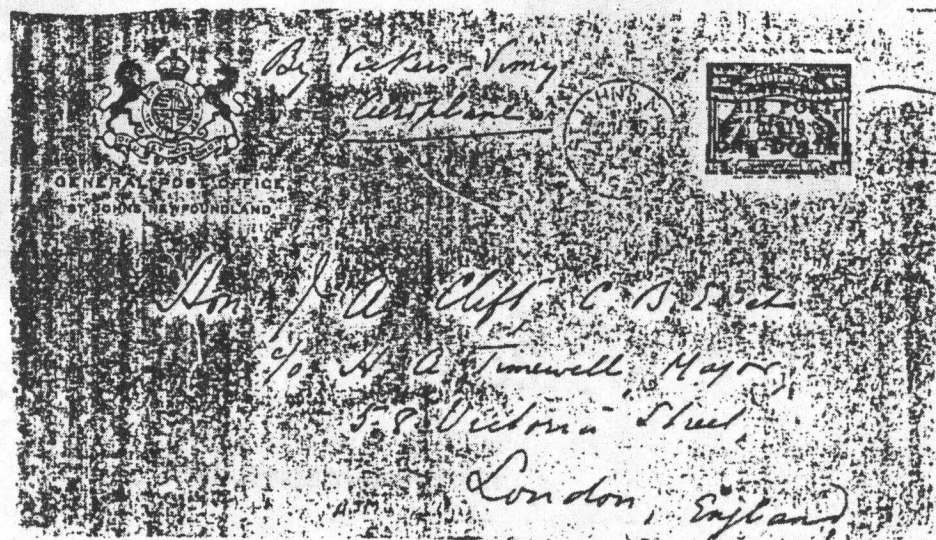 By Vickers Vimy
Aeroplane
GENERAL POST OFFICE
ST JOHNS NEWFOUNDLAND
AIR POST
ONE DOLLAR
Hon J A Clift C B
c/o H A Timewell, Major,
58 Victoria Street,
London, England